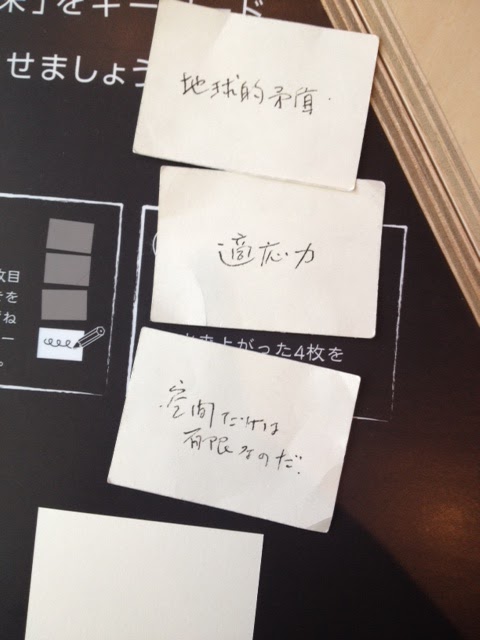 来」をキーワード
せましょう
地球的矛盾.
適応力
枚目
きを
ね
ー
。
出来上がった4枚を
空間だけは
有限なのだ.